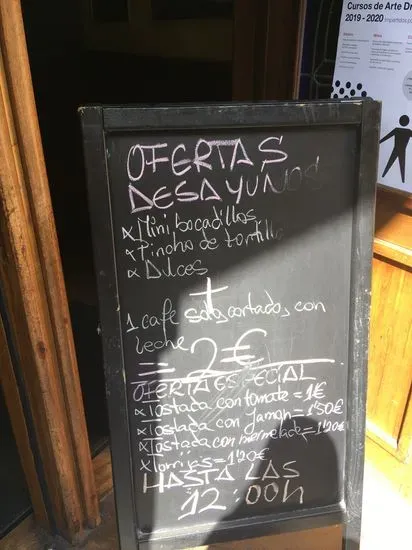 Cursos de Arte Dr
2019 - 2020
OFERTAS
DESAYUNOS
x Mini bocadillos
x Pincho de tortilla
x Dulces
+
1 cafe solo, cortado, con
leche
= 2€
OFERTA ESPECIAL
x Tostada con tomate = 1€
x Tostada con Jamon = 1'50€
x Tostada con mermelade = 1'20€
= 1'20€
HASTA LAS
12:00h